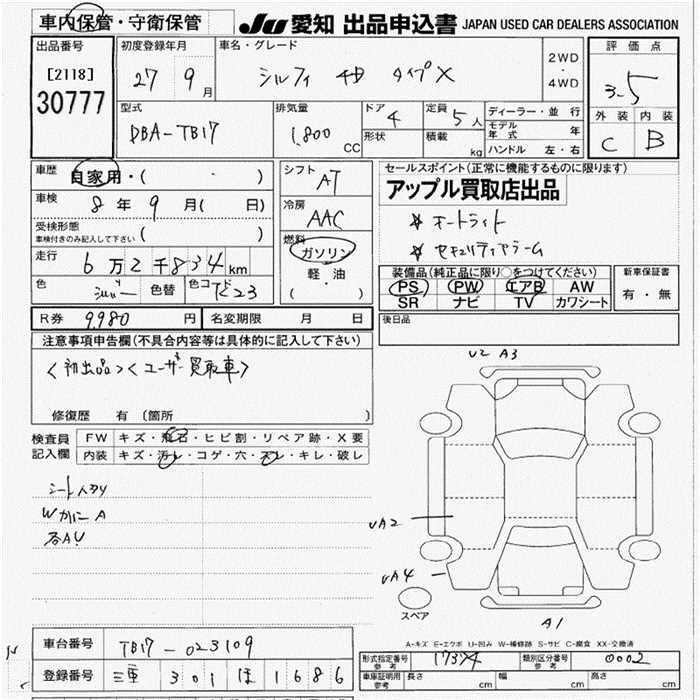 車内保管・守衛保管
JU 愛知 出品申込書 JAPAN USED CAR DEALERS ASSOCIATION
出品番号
[2118]
30777
初度登録年月
27 9月
車名・グレード
シルフィ タイプX
2WD
・
4WD
評価点
3.5
外装 内装
C B
型式
DBA-TB17
排気量
1,800 CC
ドア
4
形状
定員
5人
積載 kg
ディーラー・並行
モデル年式 年
ハンドル 左・右
車歴
自家用・( ・ )
車検
8年 9月( 日)
受検形態
車検付きのみ記入して下さい ( )
走行
6万2千834km
色
シルバー
色替
色コード
K23
シフト
AT
冷房
AAC
燃料
ガソリン
軽・油
( ・ )
セールスポイント(正常に機能するものに限ります)
アップル買取店出品
オートライト
セキュリティアラーム
装備品(純正品に限り○をつけてください)
PS PW エアB AW
SR ナビ TV カワシート
新車保証書
有・無
R券 9,980 円
名変期限 月 日
後日品
注意事項申告欄(不具合内容等は具体的に記入して下さい)
<初出品><ユーザー買取車>
修復歴 有〔箇所 〕
検査員
記入欄
FW キズ・飛石・ヒビ割・リペア跡・X要
内装 キズ・汚レ・コゲ・穴・スレ・キレ・破レ
シート
WカバーA
各AU
U2 A3
UA2
UA4
スペア
A1
A-キズ E-エクボ U-凹み W-補修跡 S-サビ C-腐食 XX-交換済
車台番号 TB17-023109
登録番号 三重 301 ほ 1686
形式指定番号
参考
17374
類別区分番号
参考
0002
車庫証明用
参考
長さ cm
幅 cm
高さ cm